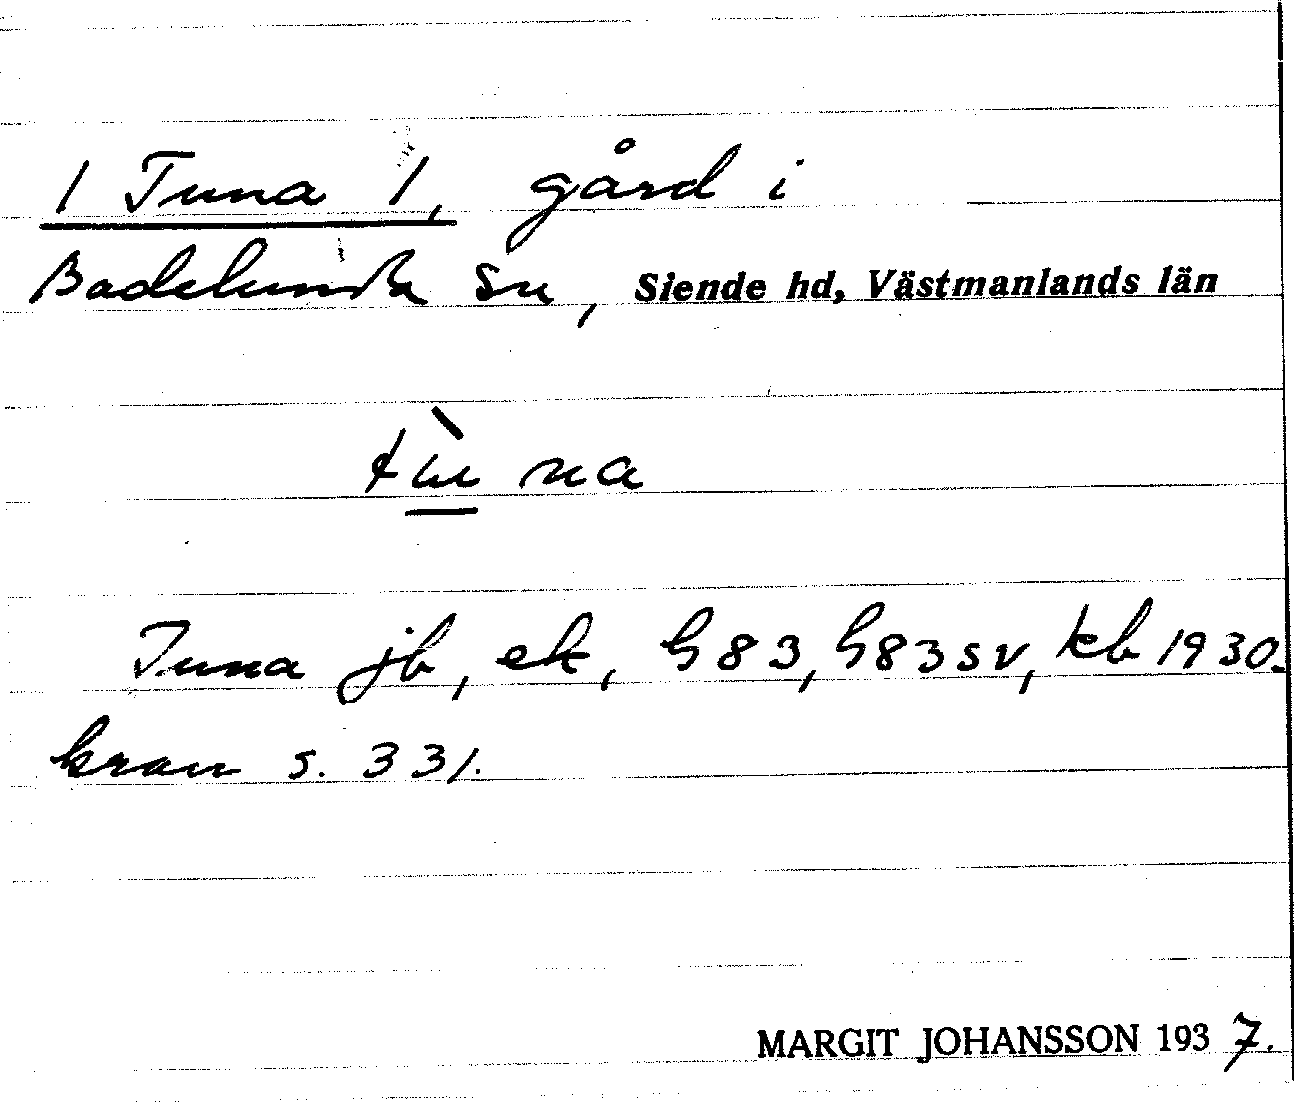 / Tuna /, gård i
Badelunda sn, Siende hd, Västmanlands län
tù na
Tuna jb, ek, h83, h83sv, kb 1930.
kran s. 331.
MARGIT JOHANSSON 1937.